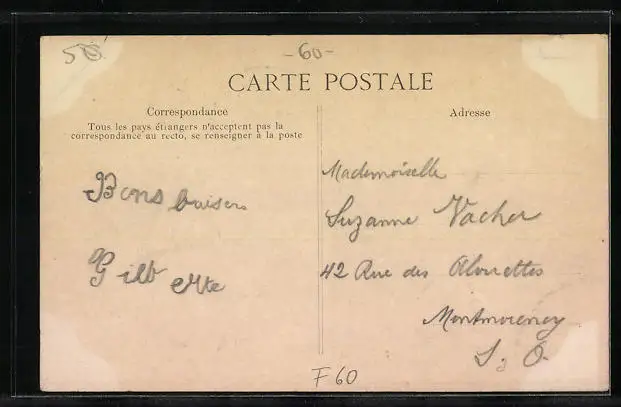 -60-
CARTE POSTALE
Correspondance
Tous les pays étrangers n'acceptent pas la
correspondance au recto, se renseigner à la poste
Bons baisers
Gilberte
Adresse
Mademoiselle
Suzanne Vacher
42 Rue des Alouettes
Montmorency
S. O.
F60